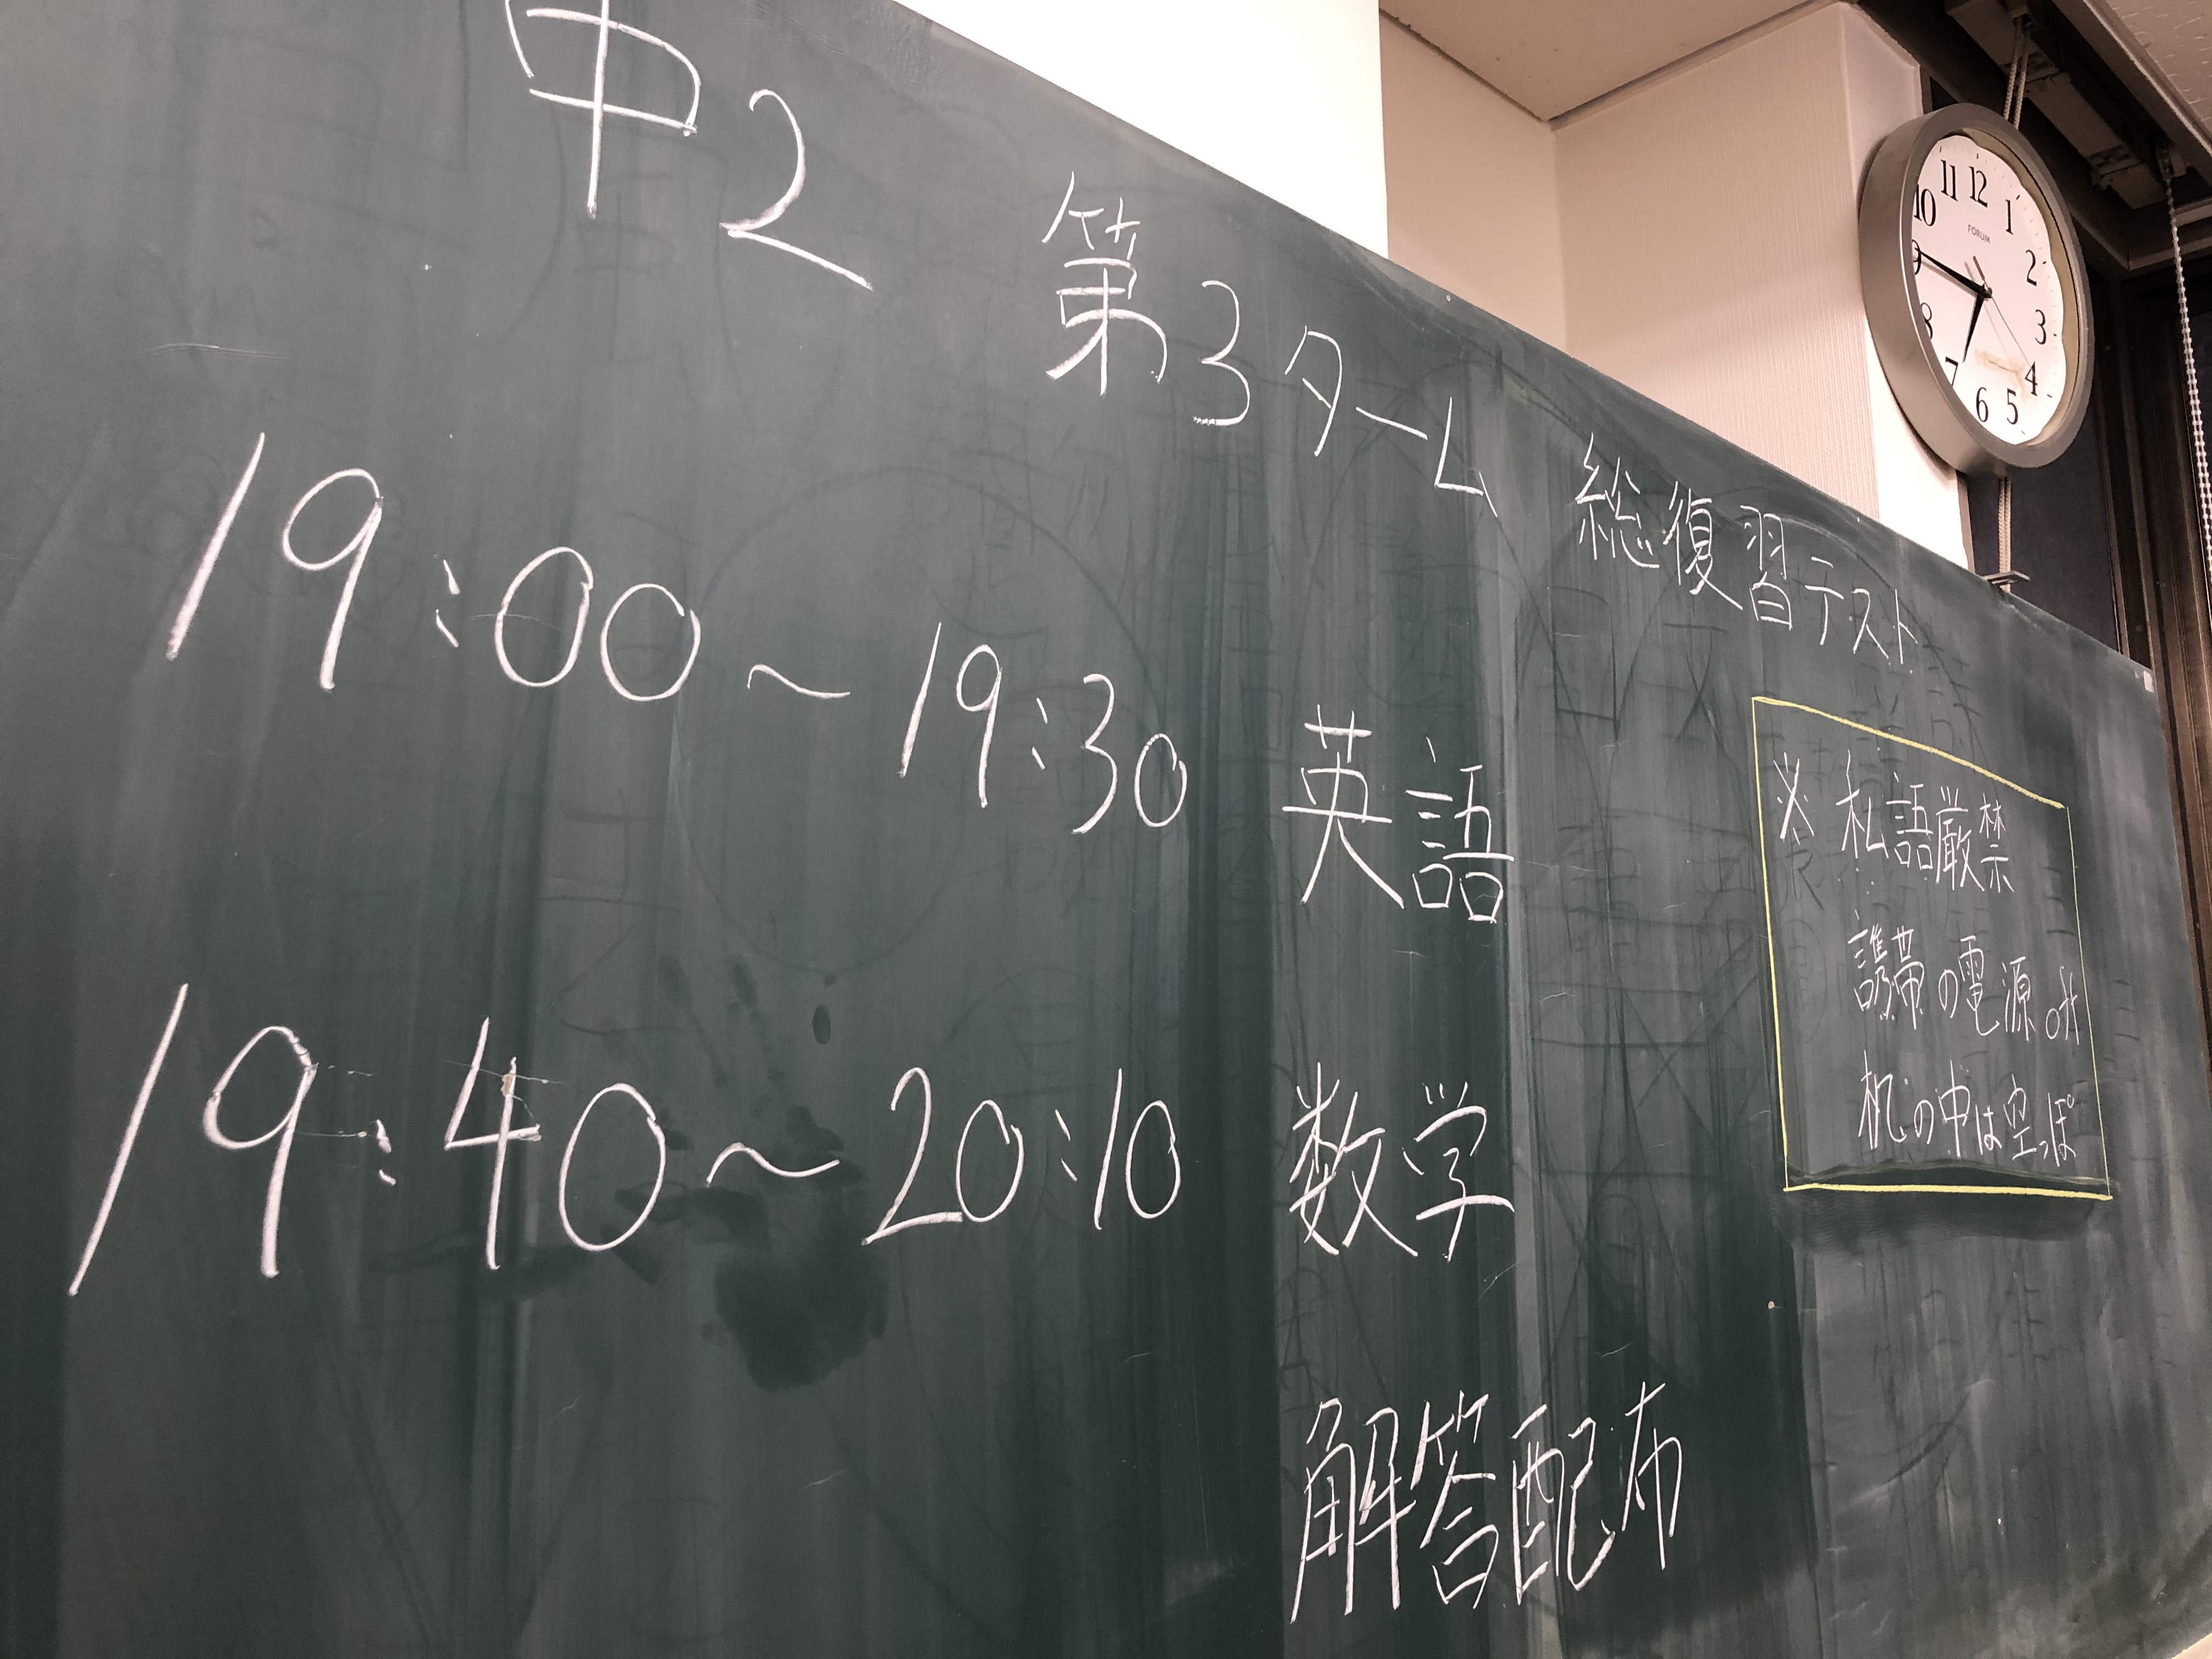 中2 第3ターム 総復習テスト
19:00～19:30 英語
19:40～20:10 数学
解答配布
※ 私語厳禁
携帯の電源off
机の中は空っぽ
FORUM
12
1
2
3
4
5
6
7
8
9
10
11